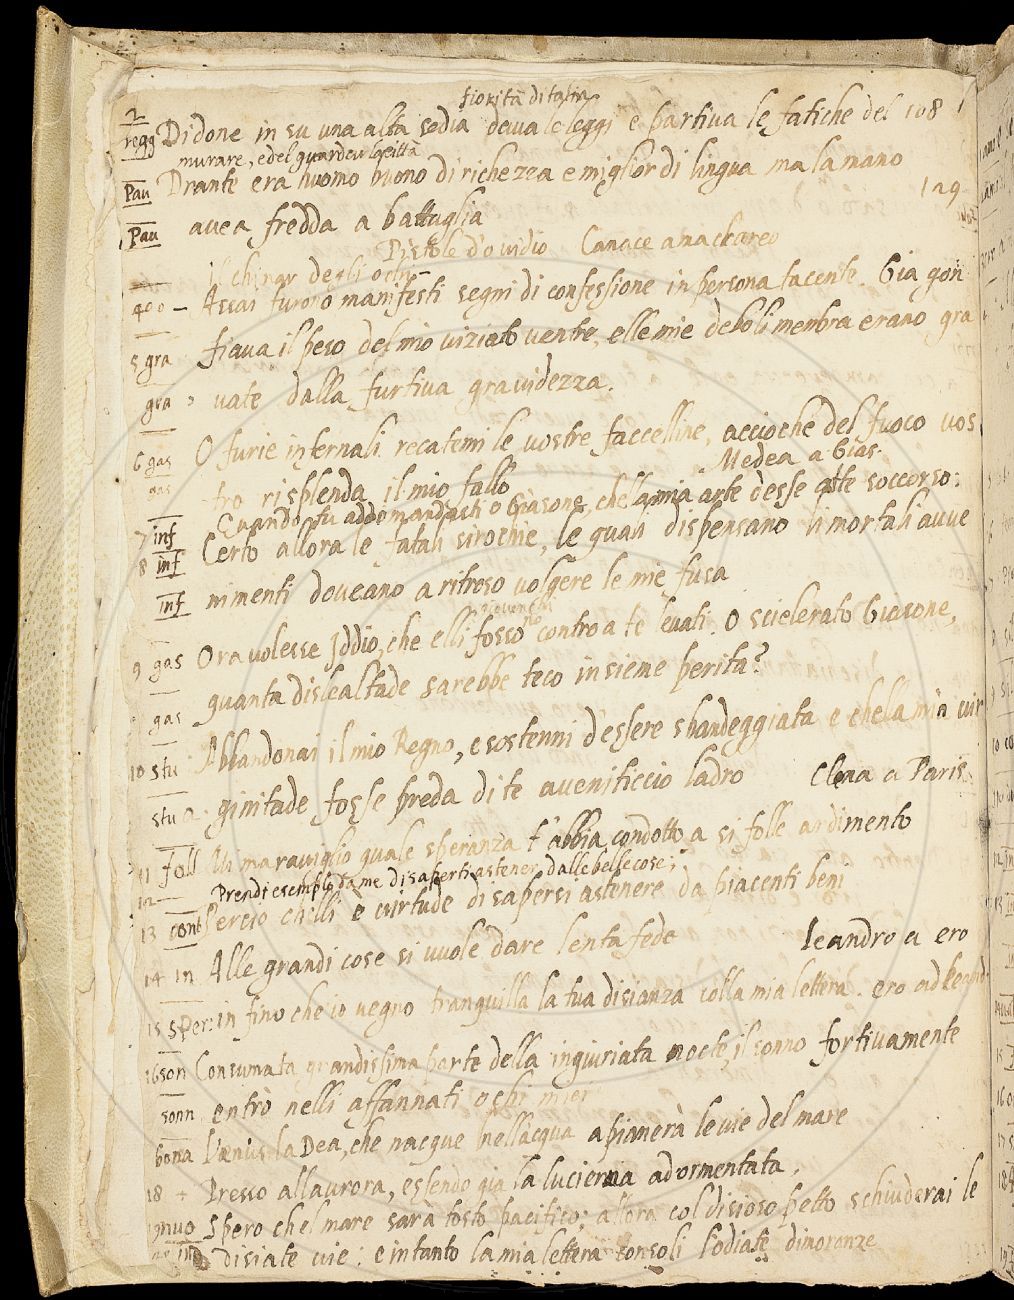 fiorità di Italia
2
regg Didone in su una alta sedia dava le leggi e partiva le fatiche del 108
murare, e del guardar la città
Pau Drante era huomo buono di richezza e miglior di lingua ma la mano
129
Pau avea fredda a battaglia
Pistole d'ovidio Canace a macareo
400 – Assai furono manifesti segni di confessione in persona tacente. Gia gon
5 gra fiava il peso del mio viziato ventre, elle mie deboli membra erano gra
gra vate dalla furtiva gravidezza.
6 gas O furie infernali recatemi le vostre faccelline, accioche del fuoco vos
Medea a Gias.
gas tro risplenda il mio fallo
7 inf Quando tu addomandasti o Giasone, chella mia arte desse atte soccorso:
8 inf Certo allora le fatali sirochie, le quali dispensano li mortali avve
inf nimenti doveano a ritroso volgere le mie fusa
9 gas Ora volesse Iddio, che elli fosso contro a te levati. O scielerato Giasone,
gas quanta dislealtade sarebbe teco insieme perita?
10 stu Abbandonai il mio Regno, e sostenni d essere sbandeggiata e chella mia vir
stu ginitade fosse preda di te aveniticcio ladro Elena a Paris
11 foll Mi maraviglio quale speranza t'abbia condotto a si folle ardimento
12 Prendi esemplo da me di saperti astener dalle belle cose;
13 cont Percio chelli è virtude di sapersi astenere da piacenti beni
14 in Alle grandi cose si vuole dare lenta fede leandro a ero
15 sper in fino che io vegno tranquilla la tua disianza colla mia lettera. ero ad
16 son Consumata grandissima parte della ingiuriata nocte, il sonno fortivamente
sonn entrò nelli affannati ochi miei
bona Venus la Dea, che nacque nell'acqua apianerà le vie del mare
18 + Presso all aurora, essendo gia la lucierna adormentata.
nuo Spero chel mare sarà tosto pacifico: allora col disioso petto schiuderai le
disiate vie: e intanto la mia lettera consoli l'odiate dimoranze